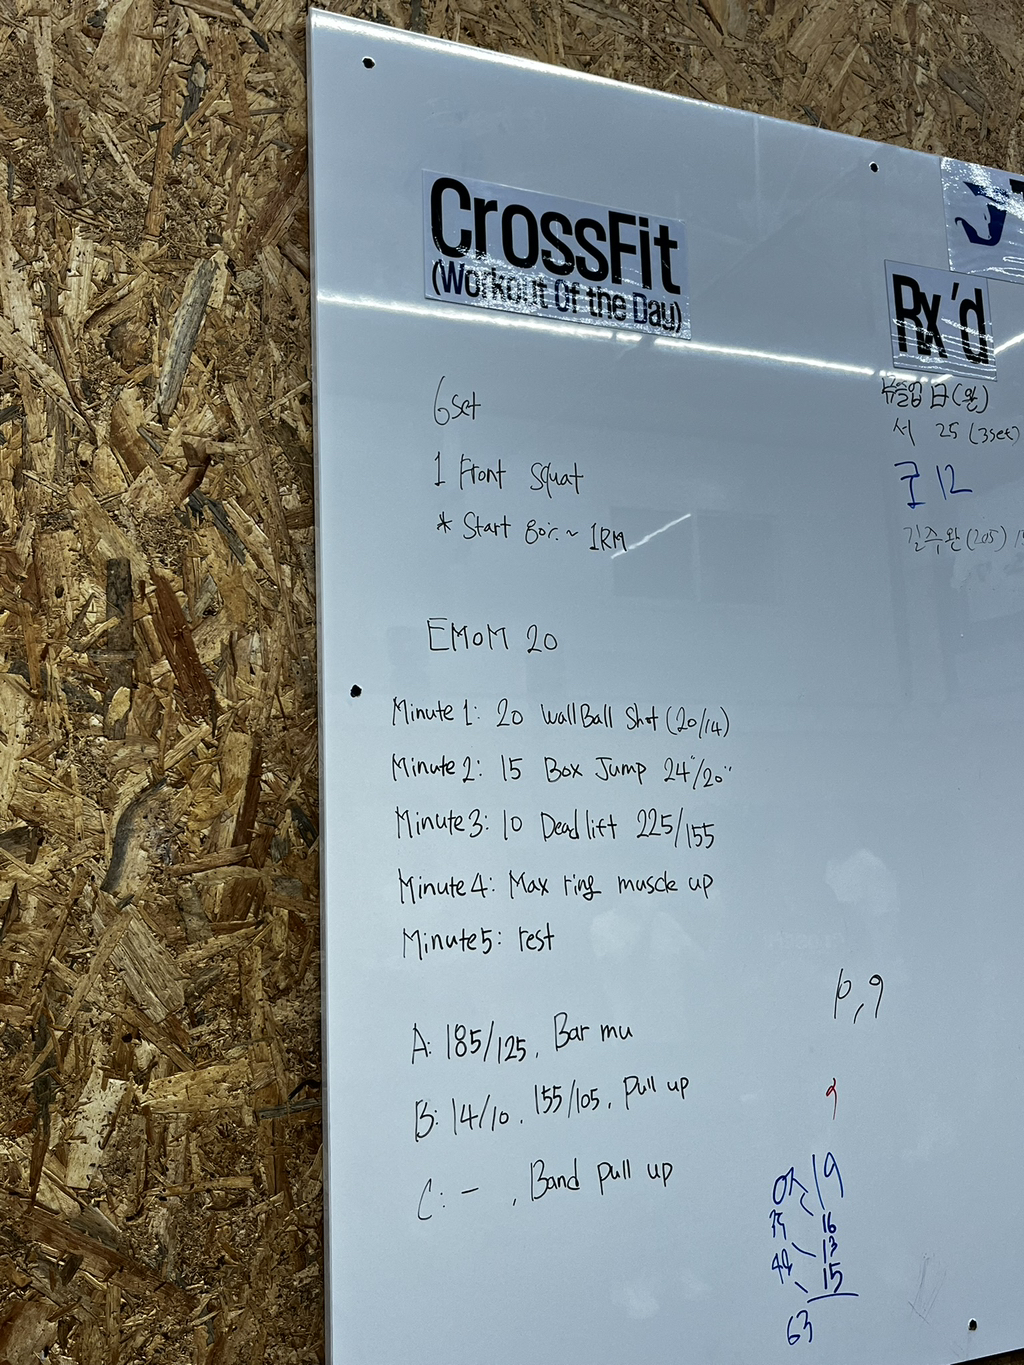 CrossFit
(Workout Of the Day)
6set
1 Front Squat
* Start 80% ~ 1RM
EMOM 20
Minute 1: 20 WallBall Shot (20/14)
Minute 2: 15 Box Jump 24"/20"
Minute 3: 10 Deadlift 225/155
Minute 4: Max ring muscle up
Minute 5: rest
A: 185/125, Bar mu
B: 14/10, 155/105, Pull up
C: - , Band pull up
Rx'd
25 (3set)
12
길주완(205)
10, 9
19
16
13
15
63